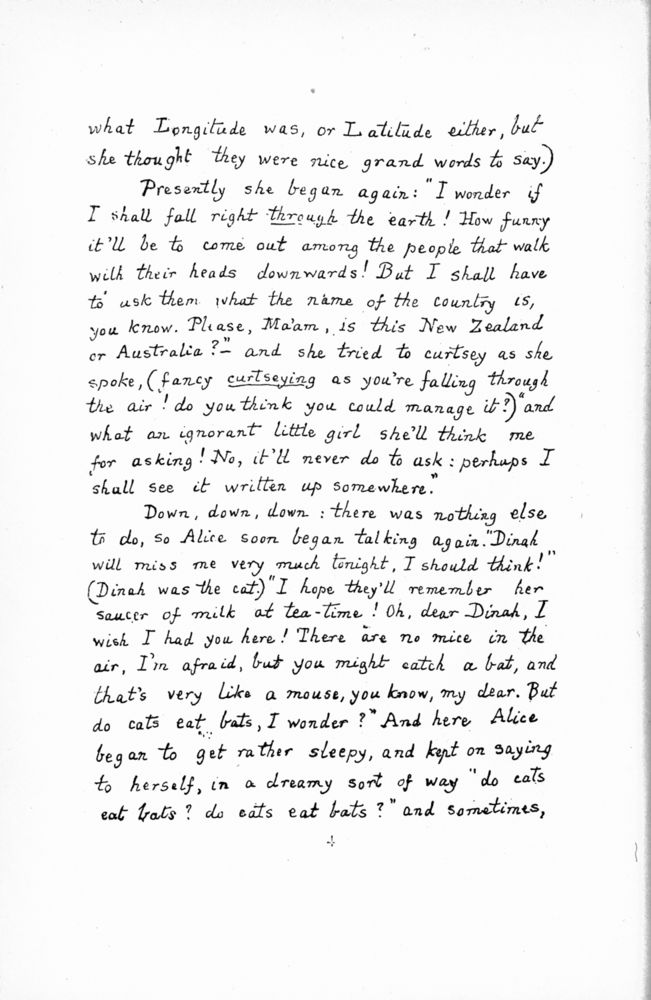 what Longitude was, or Latitude either, but
she thought they were nice grand words to say.)
Presently she began again: "I wonder if
I shall fall right through the earth! How funny
it'll be to come out among the people that walk
with their heads downwards! But I shall have
to ask them what the name of the country is,
you know. Please, Ma'am, is this New Zealand
or Australia?"— and she tried to curtsey as she
spoke, (fancy curtseying as you're falling through
the air! do you think you could manage it?) "and
what an ignorant little girl she'll think me
for asking! No, it'll never do to ask: perhaps I
shall see it written up somewhere."
Down, down, down: there was nothing else
to do, so Alice soon began talking again. "Dinah
will miss me very much tonight, I should think!"
(Dinah was the cat.) "I hope they'll remember her
saucer of milk at tea-time! Oh, dear Dinah, I
wish I had you here! There are no mice in the
air, I'm afraid, but you might catch a bat, and
that's very like a mouse, you know, my dear. But
do cats eat bats, I wonder?" And here Alice
began to get rather sleepy, and kept on saying
to herself, in a dreamy sort of way "do cats
eat bats? do cats eat bats?" and sometimes,